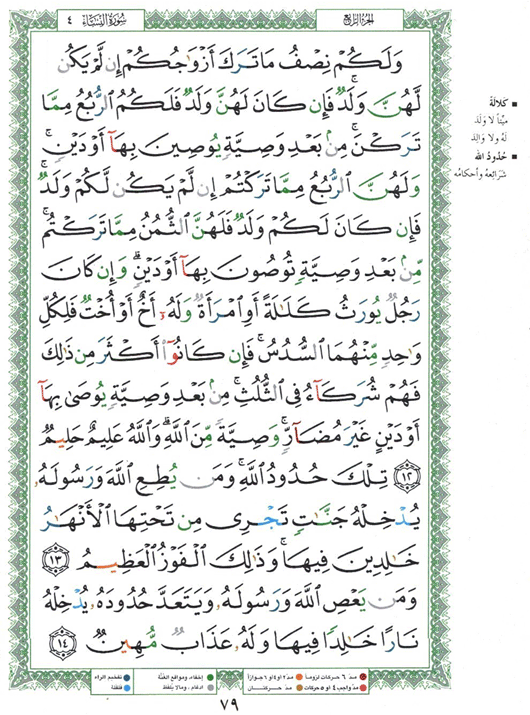 الجزء الرابع
سورة النساء ٤
وَلَكُمْ نِصْفُ مَا تَرَكَ أَزْوَٰجُكُمْ إِن لَّمْ يَكُن
لَّهُنَّ وَلَدٌ ۚ فَإِن كَانَ لَهُنَّ وَلَدٌ فَلَكُمُ ٱلرُّبُعُ مِمَّا
تَرَكْنَ ۚ مِنۢ بَعْدِ وَصِيَّةٍ يُوصِينَ بِهَآ أَوْ دَيْنٍ ۚ
وَلَهُنَّ ٱلرُّبُعُ مِمَّا تَرَكْتُمْ إِن لَّمْ يَكُن لَّكُمْ وَلَدٌ ۚ
فَإِن كَانَ لَكُمْ وَلَدٌ فَلَهُنَّ ٱلثُّمُنُ مِمَّا تَرَكْتُم ۚ
مِّنۢ بَعْدِ وَصِيَّةٍ تُوصُونَ بِهَآ أَوْ دَيْنٍ ۗ وَإِن كَانَ
رَجُلٌ يُورَثُ كَلَٰلَةً أَوِ ٱمْرَأَةٌ وَلَهُۥٓ أَخٌ أَوْ أُخْتٌ فَلِكُلِّ
وَٰحِدٍ مِّنْهُمَا ٱلسُّدُسُ ۚ فَإِن كَانُوٓا۟ أَكْثَرَ مِن ذَٰلِكَ
فَهُمْ شُرَكَآءُ فِى ٱلثُّلُثِ ۚ مِنۢ بَعْدِ وَصِيَّةٍ يُوصَىٰ بِهَآ
أَوْ دَيْنٍ غَيْرَ مُضَآرٍّ ۚ وَصِيَّةً مِّنَ ٱللَّهِ ۗ وَٱللَّهُ عَلِيمٌ حَلِيمٌ
١٢ تِلْكَ حُدُودُ ٱللَّهِ ۚ وَمَن يُطِعِ ٱللَّهَ وَرَسُولَهُۥ
يُدْخِلْهُ جَنَّٰتٍ تَجْرِى مِن تَحْتِهَا ٱلْأَنْهَٰرُ
خَٰلِدِينَ فِيهَا ۚ وَذَٰلِكَ ٱلْفَوْزُ ٱلْعَظِيمُ ١٣
وَمَن يَعْصِ ٱللَّهَ وَرَسُولَهُۥ وَيَتَعَدَّ حُدُودَهُۥ يُدْخِلْهُ
نَارًا خَٰلِدًا فِيهَا وَلَهُۥ عَذَابٌ مُّهِينٌ ١٤
■ كَلالةً
ميّتاً لا ولَدَ
لَهُ ولا والِدَ
■ حُدُودُ الله
شرَائِعهُ وأحكامُه
مدّ ٦ حركات لزوماً مدّ ٢ او ٤ او ٦ جوازاً
مدّ واجب ٤ او ٥ حركات مدّ حركتان
إخفاء، ومواقع الغُنَّة
ادغام، وما لا يُلفظ
تفخيم الراء
قلقلة
٧٩